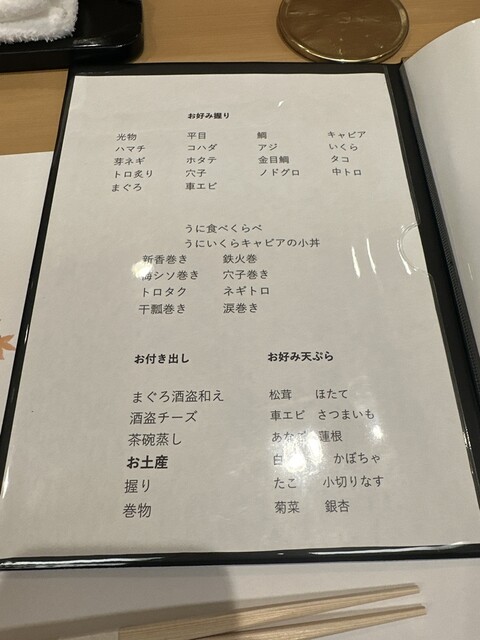 お好み握り
光物 平目 鯛 キャビア
ハマチ コハダ アジ いくら
芽ネギ ホタテ 金目鯛 タコ
トロ炙り 穴子 ノドグロ 中トロ
まぐろ 車エビ
うに食べくらべ
うにいくらキャビアの小丼
新香巻き 鉄火巻
梅シソ巻き 穴子巻き
トロタク ネギトロ
干瓢巻き 涙巻き
お付き出し お好み天ぷら
まぐろ酒盗和え 松茸 ほたて
酒盗チーズ 車エビ さつまいも
茶碗蒸し あなご 蓮根
お土産 白 かぼちゃ
握り たこ 小切りなす
巻物 菊菜 銀杏